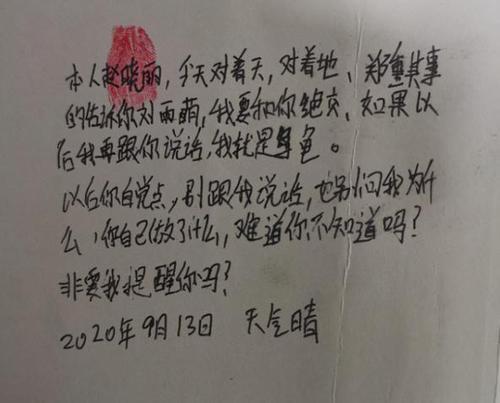 本人赵晓丽，今天对着天，对着地、郑重其事
的告诉你刘雨萌，我要和你绝交、如果以
后我再跟你说话，我就是乌龟。
以后你自觉点，别跟我说话，也别问我为什
么，你自己做了什么，难道你不知道吗？
非要我提醒你吗？
2020年9月13日 天气晴